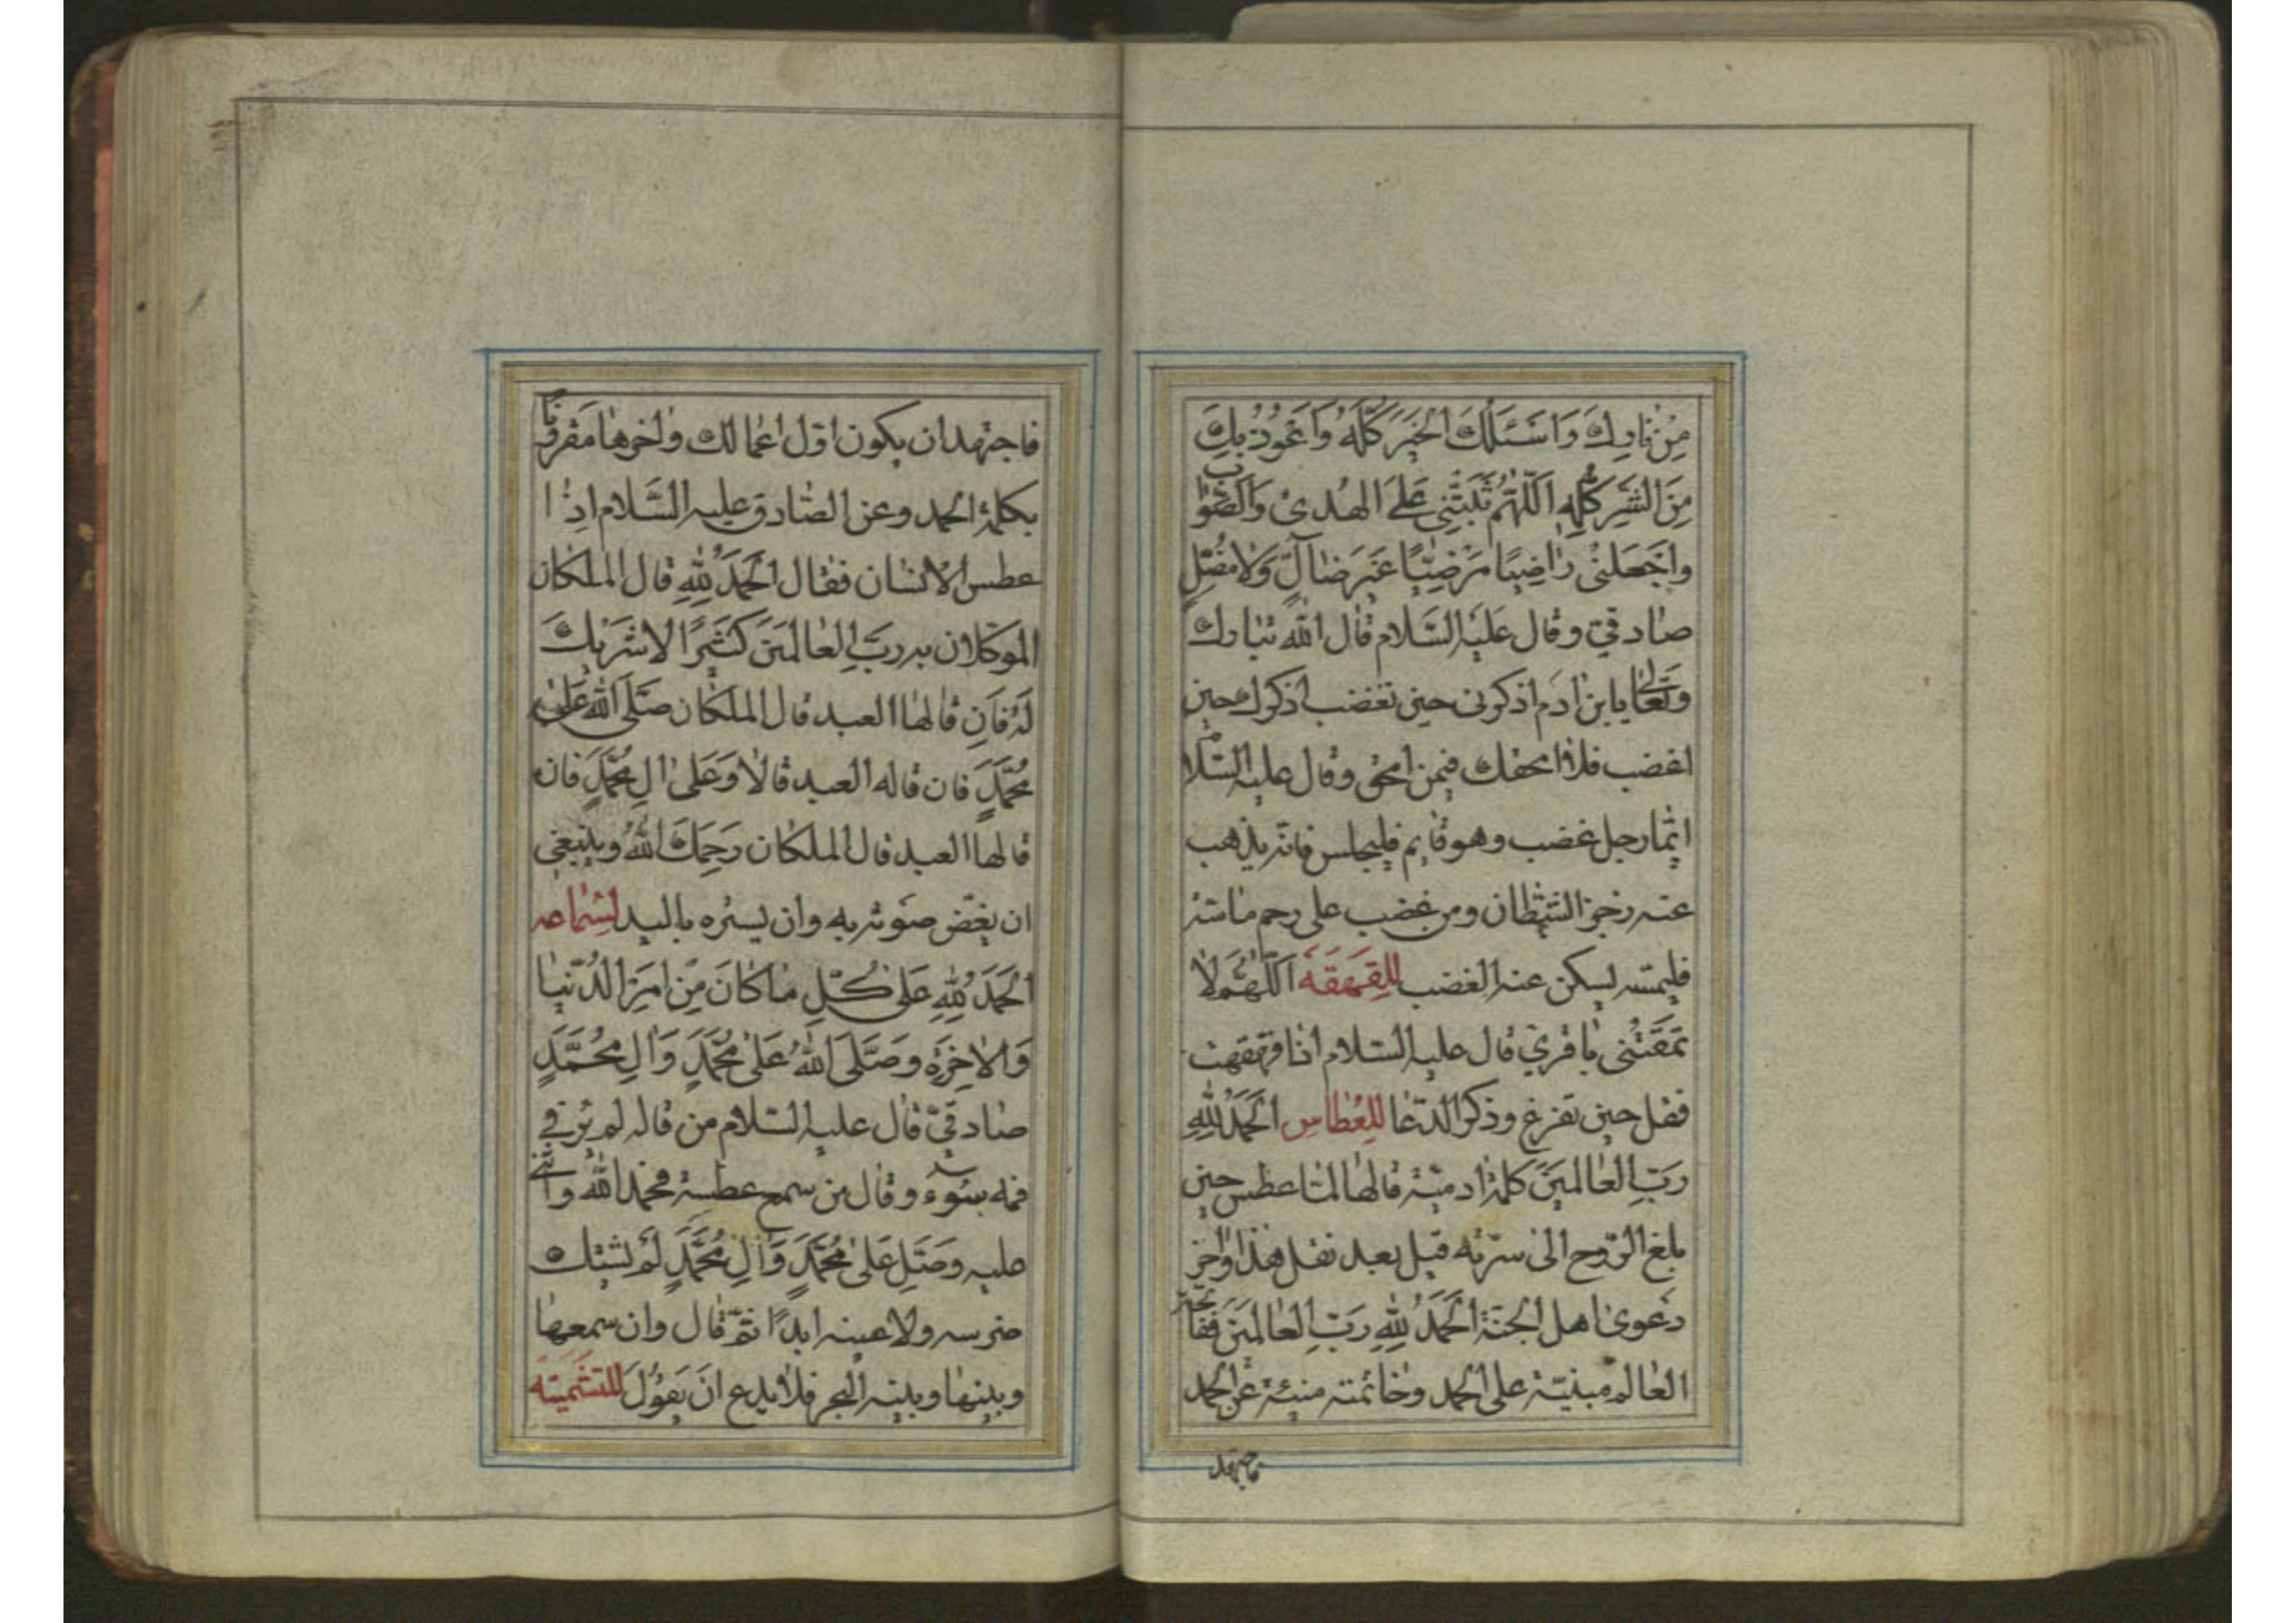 مِنْ نٰارِكَ وَاَسْئَلُكَ الْخَيْرَ كُلَّهُ وَاَعُوذُ بِكَ
مِنَ الشَّرِّ كُلِّهِ اَللّٰهُمَّ ثَبِّتْنِى عَلَى الْهُدىٰ وَالصَّوٰابِ
وَاجْعَلْنى رٰاضِيًا مَرْضِيًّا غَيْرَ ضٰالٍّ وَلٰا مُضِلٍّ
صٰادقىّ وقٰال عَلَيْهِ السَّلٰام قٰال اللّٰه تبٰارك
وتعٰالى يا بن اٰدم اذكرنى حين تغضب اذكرك حين
اغضب فلا امحقك فيمن امحق وقال عليه السّلام
ايّما رجل غضب وهو قٰايم فليجلس فانّه يذهب
عنه رجز الشّيطان ومن غضب على رحم ماسّه
فليمسّه يسكن عنه الغضب لِلقَهقَهَة اَللّٰهُمَّ لٰا
تَمْقُتْنى باقرىّ قال عليه السّلام اذا قهقهت
فقل حين تفرغ وذكر الدّعٰا لِلعُطاسِ اَلْحَمْدُ لِلّٰهِ
رَبِّ الْعٰالَمينَ كلمة ادميّة قٰالهٰا لمّا عطس حين
بلغ الرّوح الى سرّته قيل بعد نقل هذا واٰخر
دعوىٰ اهل الجنّة اَلْحَمْدُ لِلّٰهِ رَبِّ الْعٰالَمينَ ففاتحة
العٰالم مبنيّة على الحمد وخٰاتمته مبنيّة عن الحمد
فاجتهد
فاجتهد ان يكون اوّل اعمالك واٰخرها مقرونًا
بكلمة الحمد وعن الصّادق عليه السَّلام اذٰا
عطس الانسٰان فقٰال اَلْحَمْدُ لِلّٰهِ قٰال الملكٰان
الموكّلان به رَبِّ الْعٰالَمينَ كَثيرًا لٰا شَريكَ
لَهُ فَاِن قٰالهٰا العبد قال الملكٰان صَلَّى اللّٰهُ عَلىٰ
مُحَمَّدٍ فان قاله العبد قالٰا وَعَلىٰ اٰلِ مُحَمَّدٍ فان
قالها العبد قال الملكان رَحِمَكَ اللّٰهُ وينبغى
ان يغضّ صوته به وان يستره باليد لِسَماعه
اَلْحَمْدُ لِلّٰهِ عَلىٰ كُلِّ مٰا كٰانَ مِنْ اَمْرِ الدُّنْيٰا
وَالْاٰخِرَةِ وَصَلَّى اللّٰهُ عَلىٰ مُحَمَّدٍ وَاٰلِ مُحَمَّدٍ
صٰادقىّ قٰال عليه السّلام من قاله لم ير فى
فمه سوء وقٰال من سمع عطسة فحمد اللّٰه واثنى
عليه وصَلّى عَلىٰ مُحَمَّدٍ وَاٰلِ مُحَمَّدٍ لم يشتك
ضرسه ولا عينه ابدًا ثمّ قٰال وان سمعها
وبينهٰا وبينه البحر فلا يدع اَنْ يَقُولَ للتشميتة